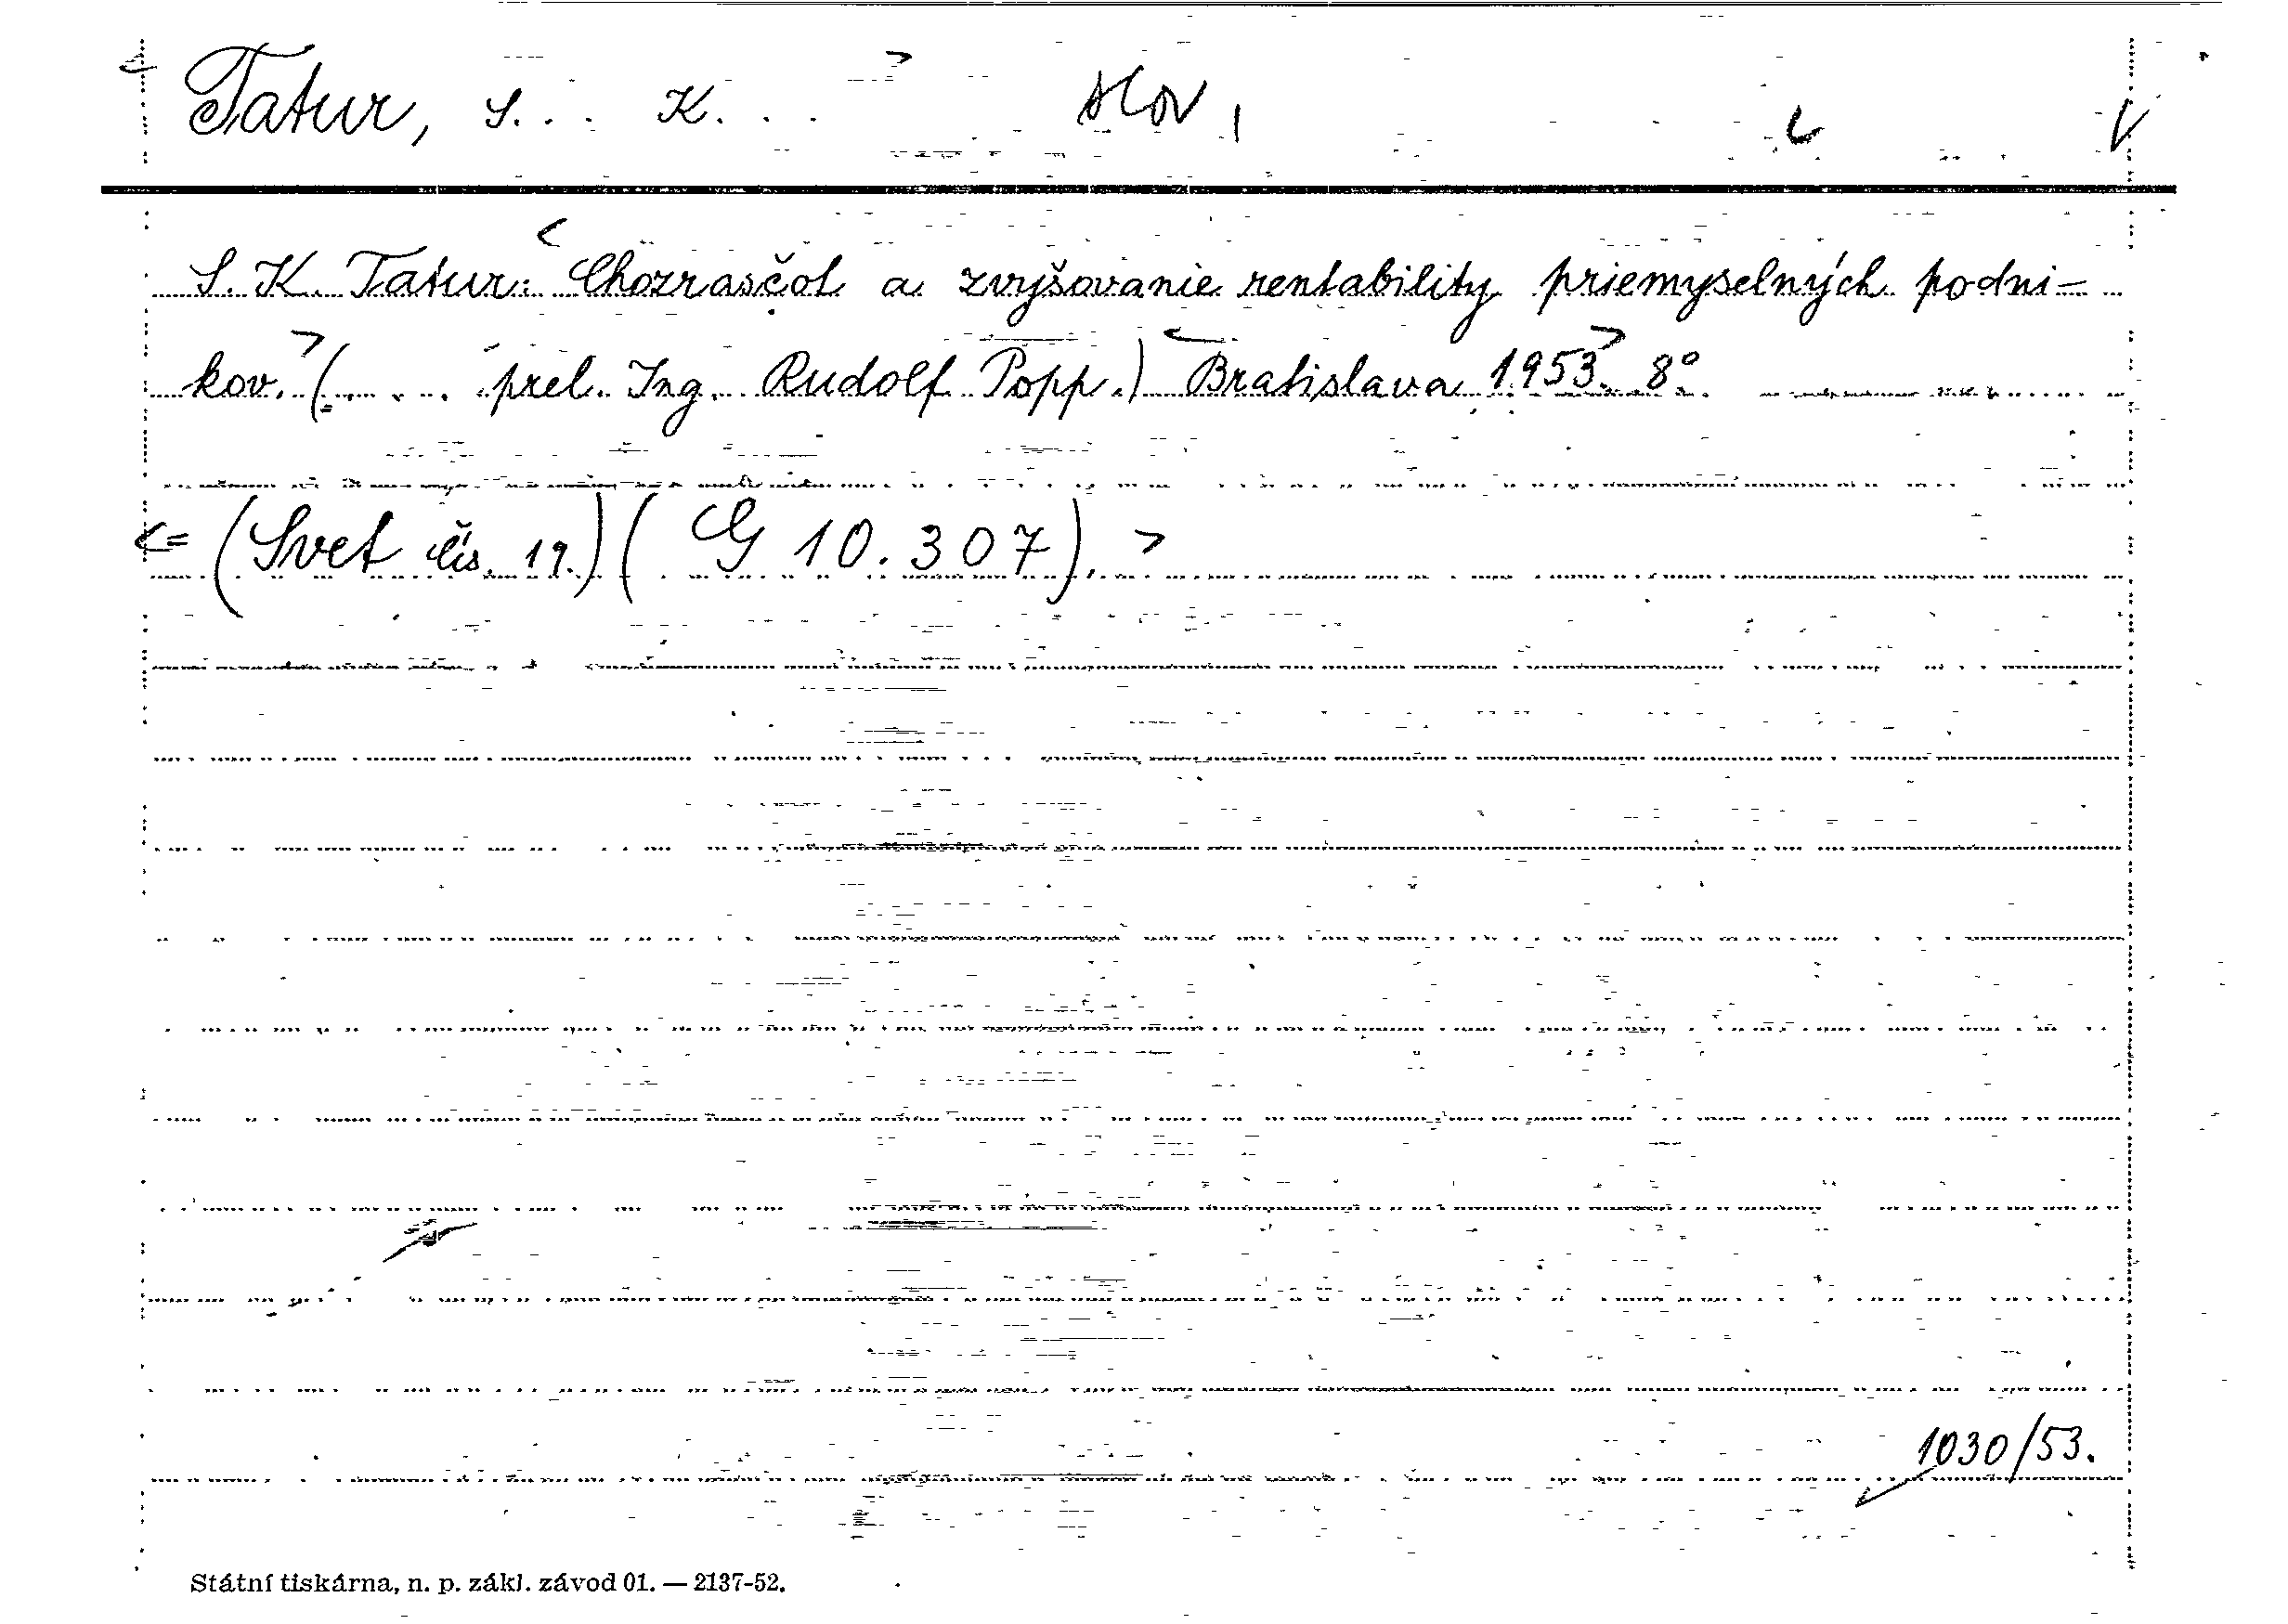 Tatur, S. . . K. . . . slov,
S. K. Tatur: Chozrasčot a zvyšovanie rentability priemyselných podni-
kov. (. . . . prel. Ing. Rudolf Popp.) Bratislava 1953. 8°.
(Svet čís. 19.) ( G 10.307).
1030/53.
Státní tiskárna, n. p. zákl. závod 01. — 2137-52.